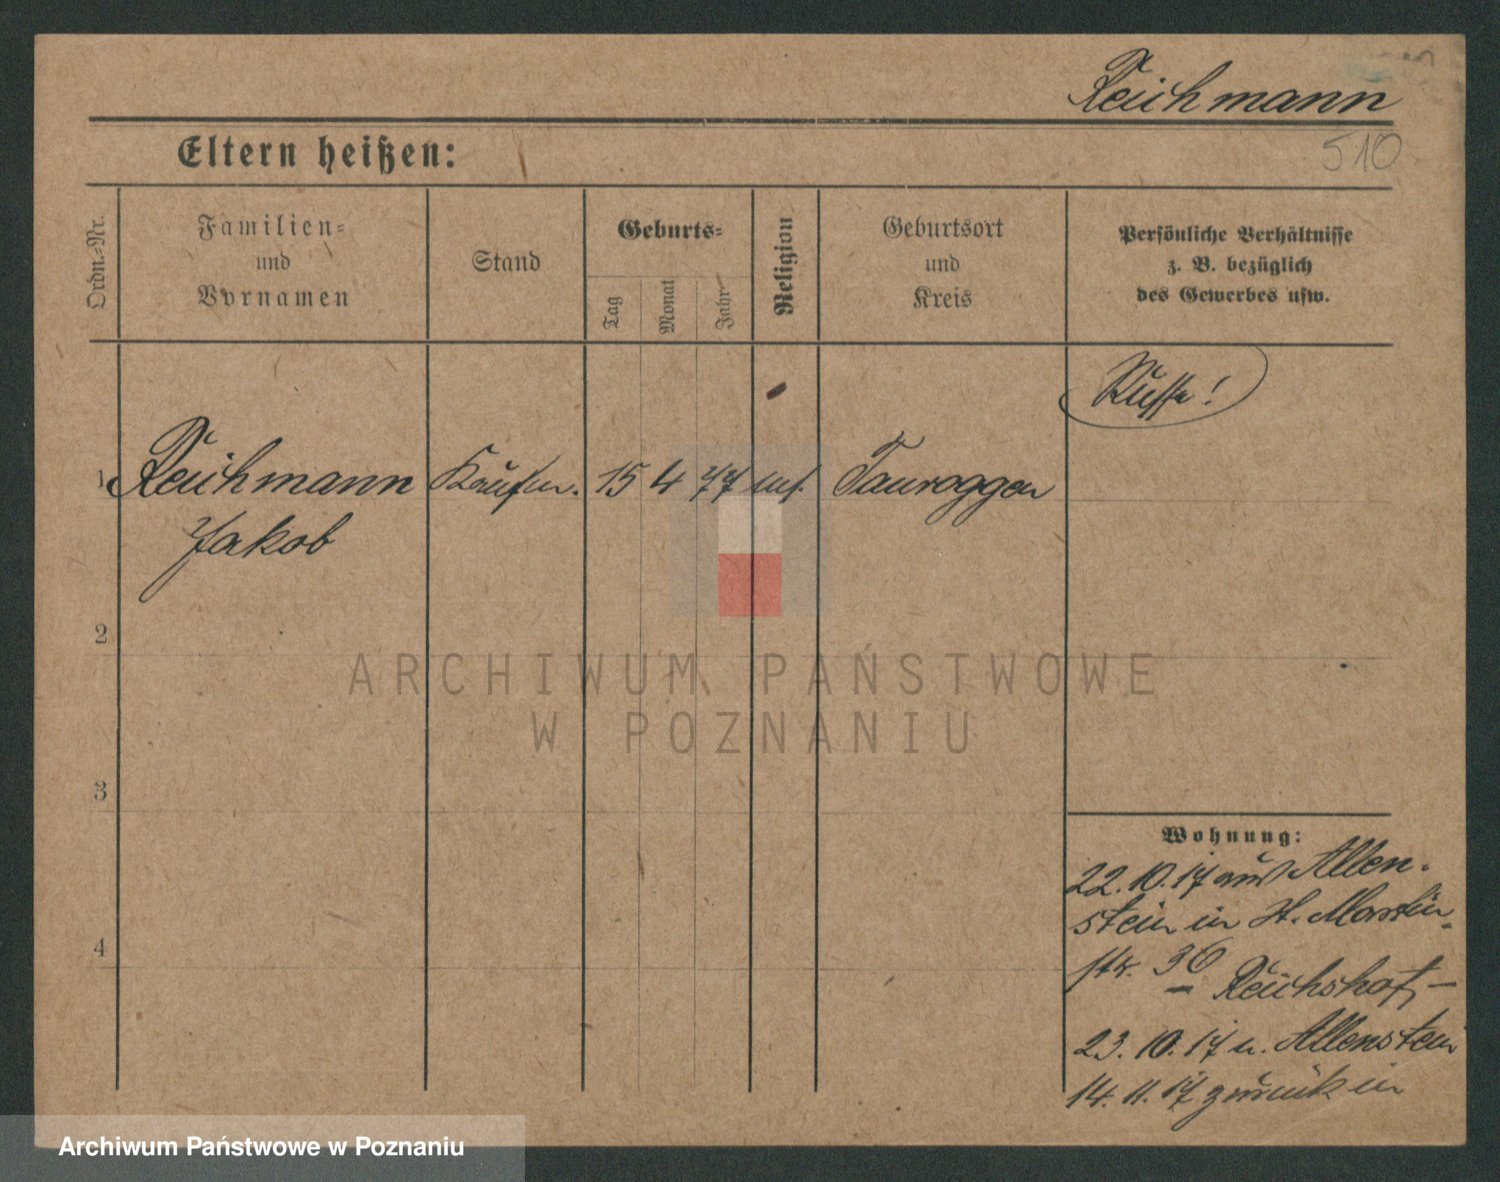 Reichmann
510
Eltern heißen:
Ordn.-Nr.
Familien-
und
Vornamen
Stand
Geburts-
Tag
Monat
Jahr
Religion
Geburtsort
und
Kreis
Persönliche Verhältnisse
z. B. bezüglich
des Gewerbes usw.
Russe!
1 Reichmann Kaufm. 15 4 77 Tauroggen
Jakob
2
3
4
Wohnung:
22.10.17 aus Allen-
stein in St. Martin-
str. 36 Reichshof,-
23.10.17 n. Allenstein
14.11.17 zurück in
ARCHIWUM PAŃSTWOWE
W POZNANIU
Archiwum Państwowe w Poznaniu